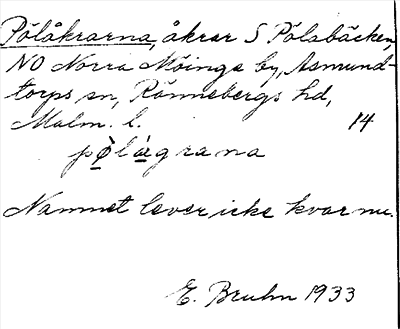 Pölåkrarna, åkrar S Pölsbäcken,
NO Norra Möinge by, Asmund-
torps sn, Rönnebergs hd,
Malm. l. 14
pø̀lágrana
Namnet lever icke kvar nu.
E. Bruhn 1933